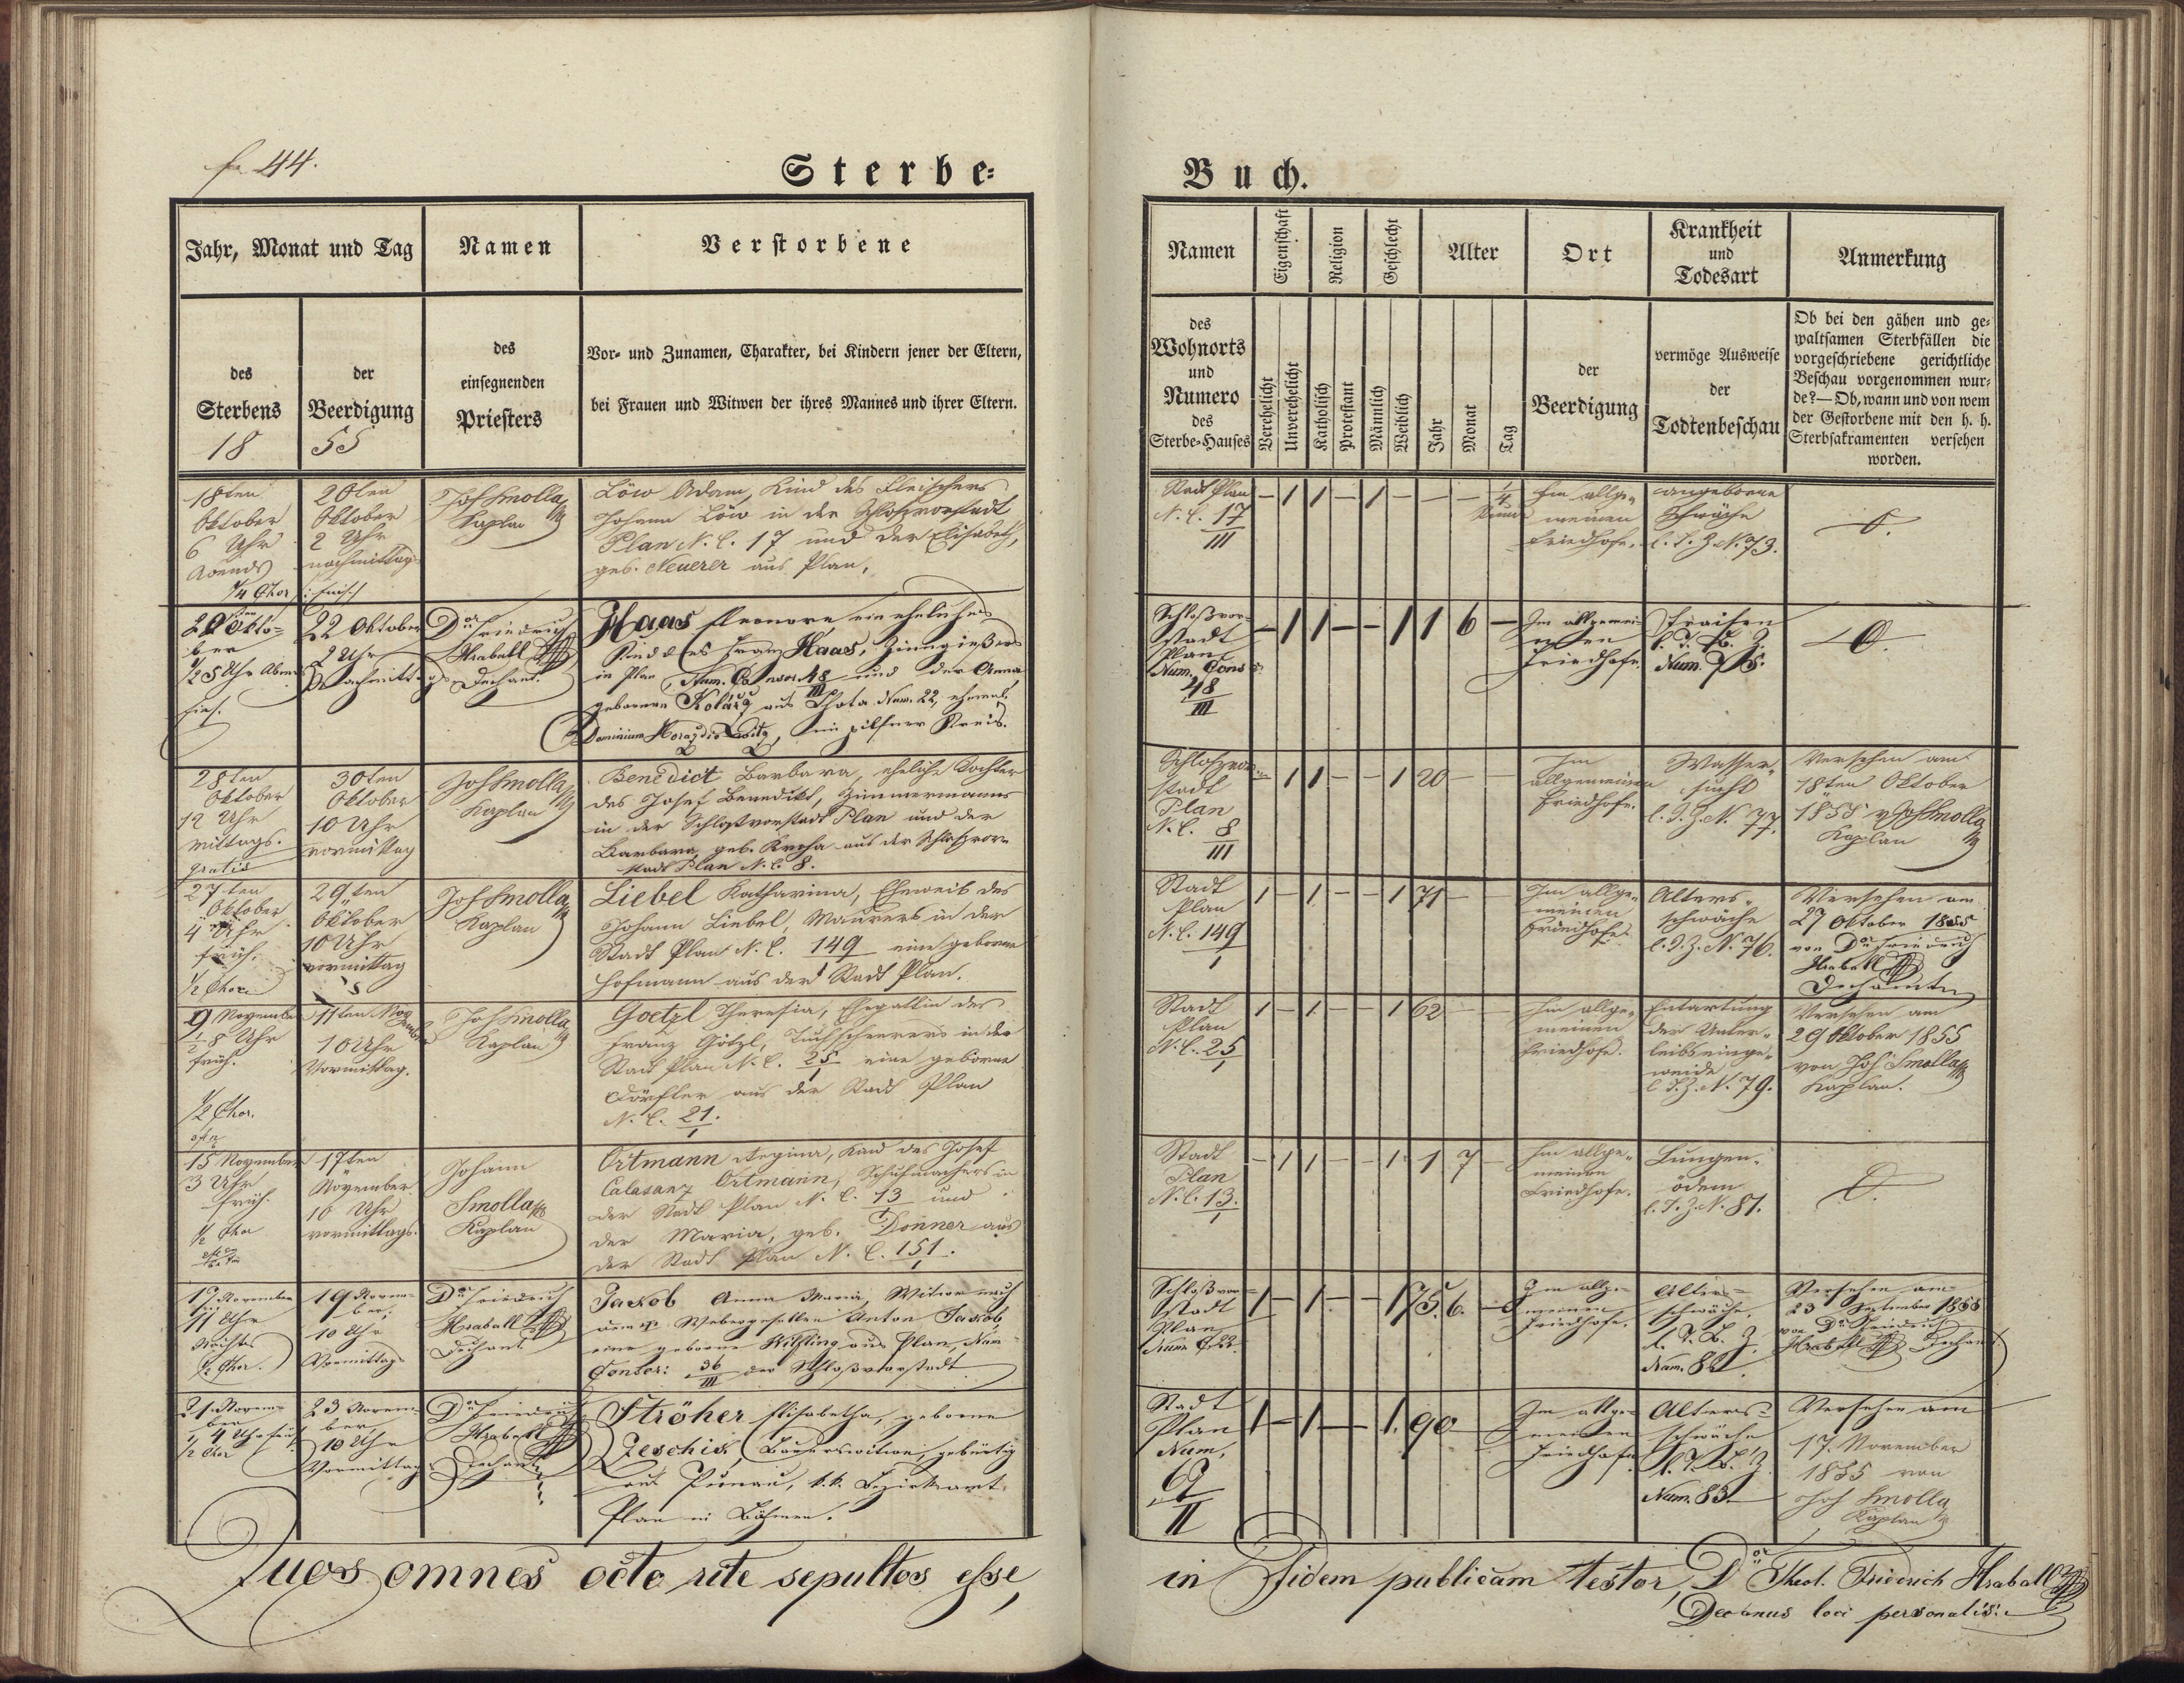 fo. 44.
Sterbe=
Buch.
Jahr, Monat und Tag
Namen
Verstorbene
des
Sterbens
18
der
Beerdigung
55
des
einsegnenden
Priesters
Vor- und Zunamen, Charakter, bei Kindern jener der Eltern,
bei Frauen und Witwen der ihres Mannes und ihrer Eltern.
Namen
Eigenschaft
Religion
Geschlecht
Alter
Ort
Krankheit
und
Todesart
Anmerkung
des
Wohnorts
und
Numero
des
Sterbe=Hauses
Verehelicht
Unverehelicht
Katholisch
Protestant
Männlich
Weiblich
Jahr
Monat
Tag
der
Beerdigung
vermöge Ausweise
der
Todtenbeschau
Ob bei den gähen und ge=
waltsamen Sterbfällen die
vorgeschriebene gerichtliche
Beschau vorgenommen wur=
de?— Ob, wann und von wem
der Gestorbene mit den h. h.
Sterbsakramenten versehen
worden.
18ten
Oktober
6 Uhr
Abends
1/4 Chor
20ten
Oktober
2 Uhr
nachmittag
Joh Smolla
Kaplan
Löw Adam, Kind des Fleischers
Johann Löw in der Schloßvorstadt
Plan N. C. 17 und der Elisabeth,
geb. Neuerer aus Plan.
Stadt Plan
N. C. 17
III
— 1 1 — 1 — — — 1/4
Stunde
Im allge=
meinen
Friedhofe.
angeborne
Schwäche
l. T. Z. N. 73.
0.
20ten Okto=
ber
1/2 5 Uhr Abends
22 Oktober
2 Uhr
Nachmittags
Dr Friedrich
Hraball
Dechant.
Haas Eleonore, ein eheliches
Kind des Franz Haas, Zinngießers
in Plan, Num. Conser. 48 und der Anna
III
gebornen Kolářz aus Lhota Num. 22, ehemal.
Dominium Horazdiowitz, im pilsner Kreis.
Schloßvor=
stadt
Plan
Num. Cons
48
III
— 1 1 — — 1 1 6 —
Im allgemei=
nen
Friedhofe.
Fraisen
l. T. B. Z.
Num. 75.
0.
28ten
Oktober
12 Uhr
mittags.
gratis
30ten
Oktober
10 Uhr
vormittag
Joh Smolla
Kaplan
Benedict Barbara, eheliche Tochter
des Josef Benedikt, Zimmermanns
in der Schloßvorstadt Plan und der
Barbara, geb. Krcha aus der Schloßvor=
stadt Plan N. C. 8.
Schloßvor=
stadt
Plan
N. C. 8
III
— 1 1 — — 1 20 — —
Im
allgemeinen
Friedhofe.
Wasser=
sucht
l. T. Z. N. 77.
Versehen am
18ten Oktober
1855 v Joh Smolla
Kaplan
27ten
Oktober
4 Uhr
früh.
1/2 Chor
29ten
Oktober
10 Uhr
vormittag
Joh Smolla
Kaplan
Liebel Katharina, Eheweib des
Johann Liebel, Maurers in der
Stadt Plan N. C. 149 eine geborne
Hofmann aus der Stadt Plan.
Stadt
Plan
N. C. 149
I
1 — 1 — — 1 71 — —
Im allge=
meinen
Friedhofe.
Alters=
schwäche
l. T. Z. N. 76.
Versehen am
27 Oktober 1855
von Dr Friedrich
Hraball
Dechanten
9 November
1/2 8 Uhr
früh.
1/2 Chor.
11ten November
10 Uhr
Vormittag.
Joh Smolla
Kaplan
Goetzl Theresia, Ehegattin des
Franz Götzl, Tuchscherers in der
Stadt Plan N. C. 25 eine geborne
I
Dörfler aus der Stadt Plan
N. C. 21.
I
Stadt
Plan
N. C. 25
I
1 — 1 — — 1 62 — —
Im allge=
meinen
Friedhofe.
Entartung
der Unter=
leibseinge=
weide
l. T. Z. N. 79.
Versehen am
29 Oktober 1855
von Joh Smolla
Kaplan.
15 November
3 Uhr
früh.
1/2 Chor
17ten
November
10 Uhr
vormittags.
Johann
Smolla
Kaplan
Ortmann Regina, Kind des Josef
Calasanz Ortmann, Schuhmachers in
der Stadt Plan N. C. 13 und
I
der Maria, geb. Donner aus
der Stadt Plan N. C. 151.
I
Stadt
Plan
N. C. 13.
I
— 1 1 — — 1 1 7 —
Im allge=
meinen
Friedhofe.
Lungen=
ödem
l. T. Z. N. 81.
0.
17 November
11 Uhr
Nachts
1/2 Chor.
19 Novem=
ber,
10 Uhr
Vormittags
Dr Friedrich
Hraball
Dechant
Jakob Anna Maria, Witwe nach
dem Webergesellen Anton Jakob,
eine geborne Wihsling aus Plan, Num
Conser: 36 der Schloßvorstadt
III
Schloßvor=
stadt
Plan
Num C. 22.
1 — 1 — — 1 75. 6. —
Im allge=
meinen
Friedhofe.
Alters=
schwäche,
l. T. B. Z.
Num. 82.
Versehen am
23 September 1855
von Dr Friedrich
Hraball Dechant
21. Novem=
ber
1/4 4 Uhr früh
1/2 Chor
23 Novem=
ber
10 Uhr
Vormittags
Dr Friedrich
Hraball
Dechant
Ströher Elisabetha, geborne
Zeschik, Bäckerswitwe, gebürtig
aus Punnau, k. k. Bezirksamt
Plan in Böhmen.
Stadt
Plan
Num.
69
II
1 — 1 — — 1. 90
Im allge=
meinen
Friedhofe
Alters=
schwäche
l. T. B. Z.
Num. 83.
Versehen am
17. November
1855 von
Joh Smolla
Kaplan
Quos omnes octo rite sepultos esse,
in fidem publicam testor, Dr Theol. Friedrich Hraball
Decanus loci personalis.